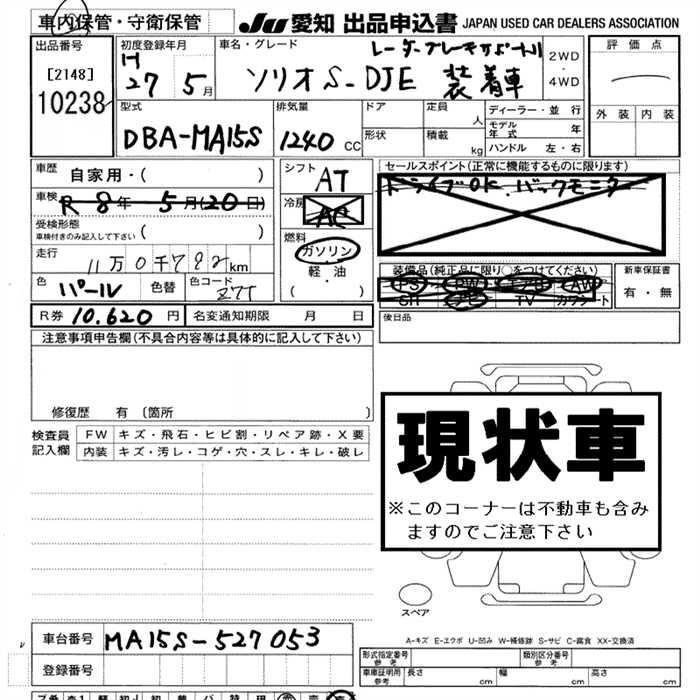 車内保管・守衛保管 JU 愛知 出品申込書 JAPAN USED CAR DEALERS ASSOCIATION
出品番号 初度登録年月 車名・グレード レーダーブレーキサポートII 2WD・4WD 評価点
[2148] H 27 5月 ソリオ S-DJE 装着車
10238 型式 排気量 ドア 定員 人 ディーラー・並行 外装 内装
DBA-MA15S 1240 CC 形状 積載 kg モデル年式 年
ハンドル 左・右
車歴 自家用・( ) シフト AT セールスポイント(正常に機能するものに限ります)
車検 R 8年 5月(20日) 冷房 AC ドライブOK バックモニター
受検形態 車検付きのみ記入して下さい ( ) 燃料 ガソリン・軽油・( )
走行 11万0千792km 装備品(純正品に限り○をつけてください) 新車保証書
色 パール 色替 色コード Z7T PS PW エアB AW 有・無
SR エアC TV カワシート
R券 10.620円 名変通知期限 月 日 後日品
注意事項申告欄(不具合内容等は具体的に記入して下さい)
修復歴 有 〔箇所 〕
検査員記入欄 FW キズ・飛石・ヒビ割・リペア跡・X要
内装 キズ・汚レ・コゲ・穴・スレ・キレ・破レ
現状車
※このコーナーは不動車も含み
ますのでご注意下さい
スペア
A-キズ E-エクボ U-凹み W-補修跡 S-サビ C-腐食 XX-交換済
車台番号 MA15S-527053
登録番号
形式指定番号 参考 類別区分番号 参考
車庫証明用 参考 長さ cm 幅 cm 高さ cm